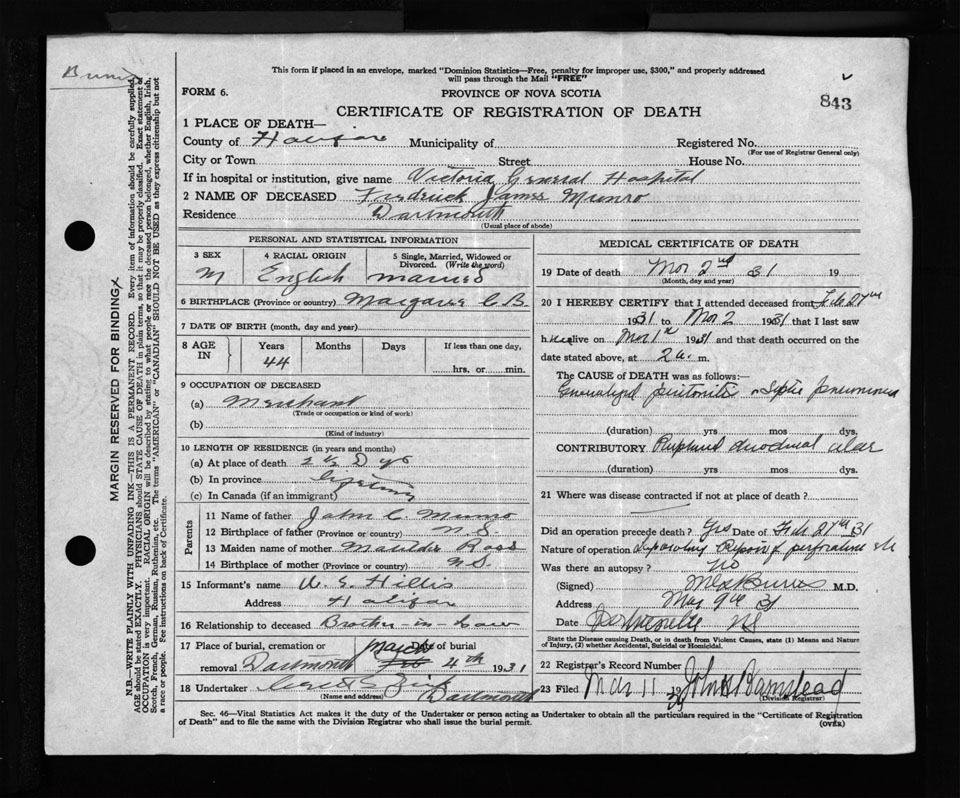 This form if placed in an envelope, marked "Dominion Statistics—Free, penalty for improper use, $300," and properly addressed
will pass through the Mail "FREE"
FORM 6.
PROVINCE OF NOVA SCOTIA
843
CERTIFICATE OF REGISTRATION OF DEATH
1 PLACE OF DEATH—
County of Halifax Municipality of Registered No.
(For use of Registrar General only)
City or Town Street House No.
If in hospital or institution, give name Victoria General Hospital
2 NAME OF DECEASED Fredrick James Munro
Residence Dartmouth
(Usual place of abode)
PERSONAL AND STATISTICAL INFORMATION
3 SEX 4 RACIAL ORIGIN 5 Single, Married, Widowed or Divorced. (Write the word)
M English married
6 BIRTHPLACE (Province or country) Margaree C.B.
7 DATE OF BIRTH (month, day and year)
8 AGE IN Years Months Days If less than one day,
44 hrs. or min.
9 OCCUPATION OF DECEASED
(a) Merchant
(Trade or occupation or kind of work)
(b)
(Kind of industry)
10 LENGTH OF RESIDENCE (in years and months)
(a) At place of death
(b) In province lifetime
(c) In Canada (if an immigrant)
Parents
11 Name of father John C. Munro
12 Birthplace of father (Province or country) N.S.
13 Maiden name of mother Matilda Ross
14 Birthplace of mother (Province or country) N.S.
15 Informant's name W. E. Hillis
Address Halifax
16 Relationship to deceased Brother-in-law
17 Place of burial, cremation or removal Dartmouth Date of burial March 4th 1931
18 Undertaker Zink Dartmouth
(Name and address)
MEDICAL CERTIFICATE OF DEATH
19 Date of death Mar 2nd 31 19
(Month, day and year)
20 I HEREBY CERTIFY that I attended deceased from Feb 27th
1931 to Mar 2 1931 that I last saw
h alive on Mar 1st 1931 and that death occurred on the
date stated above, at 2 a. m.
The CAUSE OF DEATH was as follows:—
Generalized peritonitis Septic pneumonia
(duration) yrs mos dys.
CONTRIBUTORY Ruptured duodenal ulcer
(duration) yrs mos dys.
21 Where was disease contracted if not at place of death?
Did an operation precede death? Yes Date of Feb 27th 31
Nature of operation Laparotomy Repair of perforation
Was there an autopsy? no
(Signed) M.D.
Address
Date
State the Disease causing Death, or in death from Violent Causes, state (1) Means and Nature
of Injury, (2) whether Accidental, Suicidal or Homicidal.
22 Registrar's Record Number
23 Filed Mar 11 John Barnstead
(Division Registrar)
Sec. 46—Vital Statistics Act makes it the duty of the Undertaker or person acting as Undertaker to obtain all the particulars required in the "Certificate of Registration
of Death" and to file the same with the Division Registrar who shall issue the burial permit.
(OVER)
MARGIN RESERVED FOR BINDING
N.B.—WRITE PLAINLY WITH UNFADING INK—THIS IS A PERMANENT RECORD. Every item of information should be carefully supplied.
AGE should be stated EXACTLY. PHYSICIANS should STATE CAUSE OF DEATH in plain terms, so that it may be properly classified. Exact statement of
OCCUPATION is very important. RACIAL ORIGIN will be described by stating to what people or race the deceased person belonged, whether English, Irish,
Scotch, French, German, Russian, Ruthenian, etc. The terms "AMERICAN" or "CANADIAN" SHOULD NOT BE USED as they express citizenship but not
a race or people. See instructions on back of Certificate.